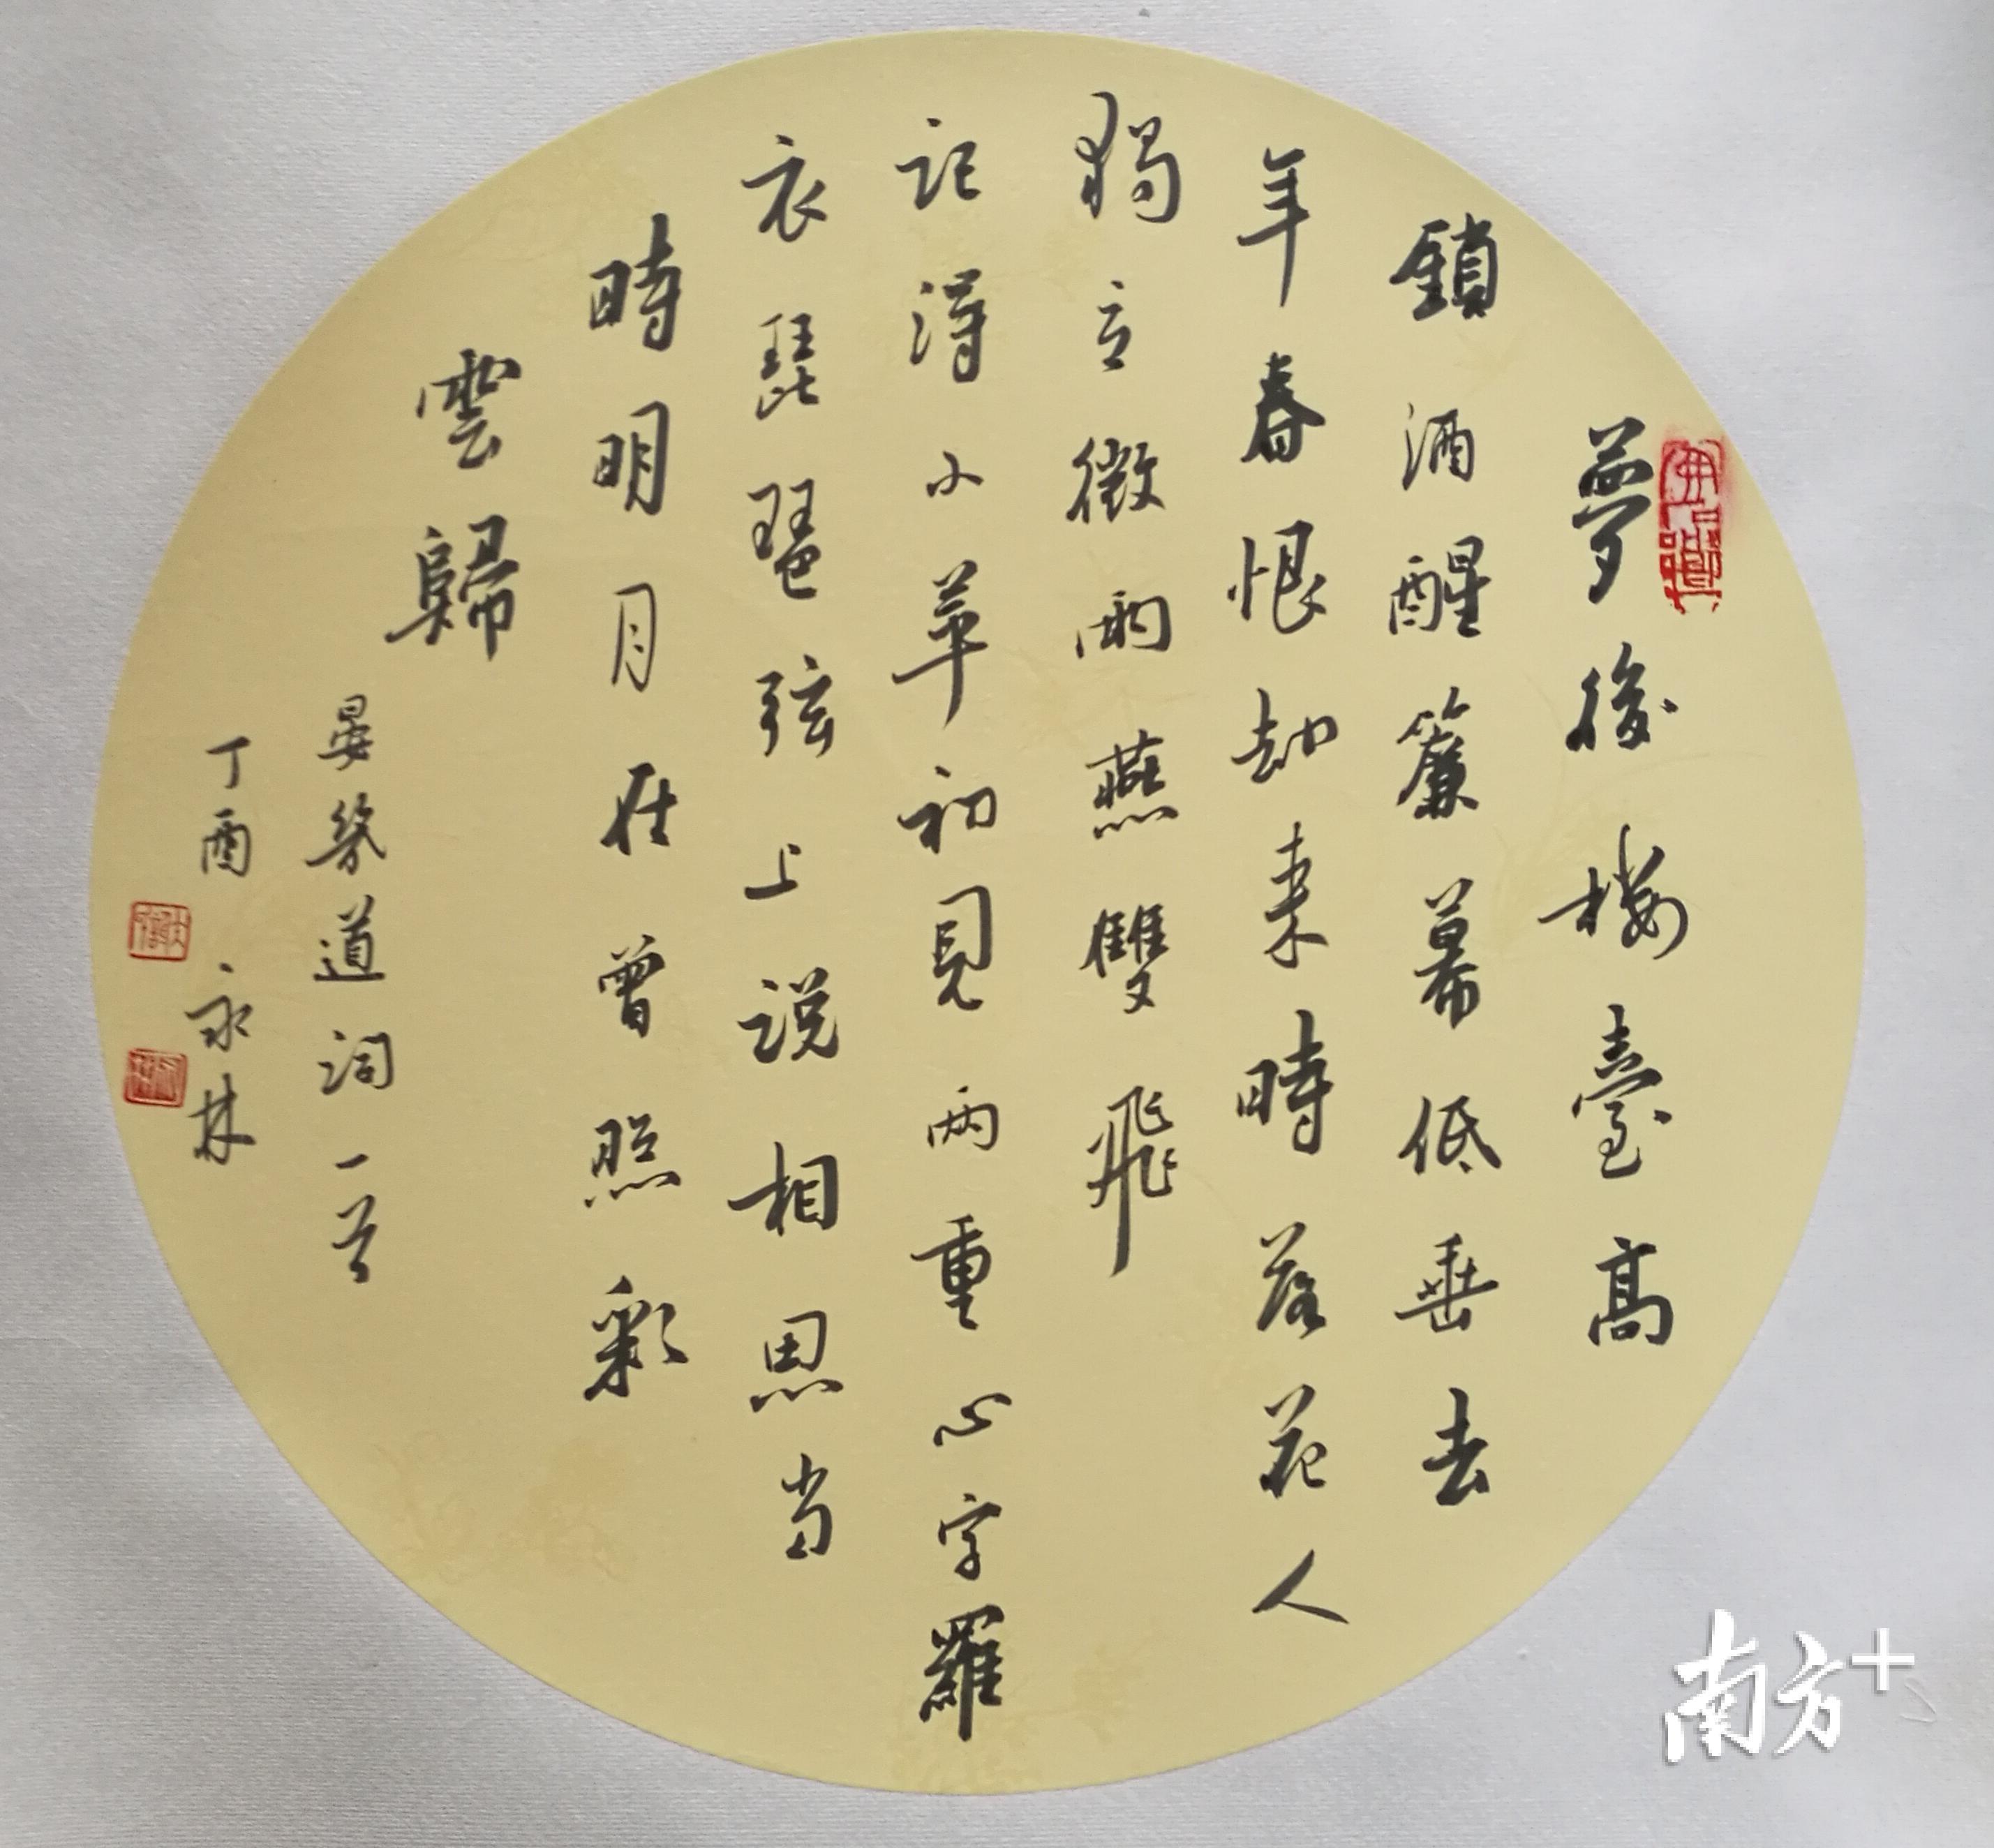 夢後樓臺高
鎖酒醒簾幕低垂去
年春恨却来時落花人
獨立微雨燕雙飛
记得小苹初見两重心字羅
衣琵琶弦上说相思当
時明月在曾照彩
雲歸
晏幾道词一首
丁酉 永林
南方+